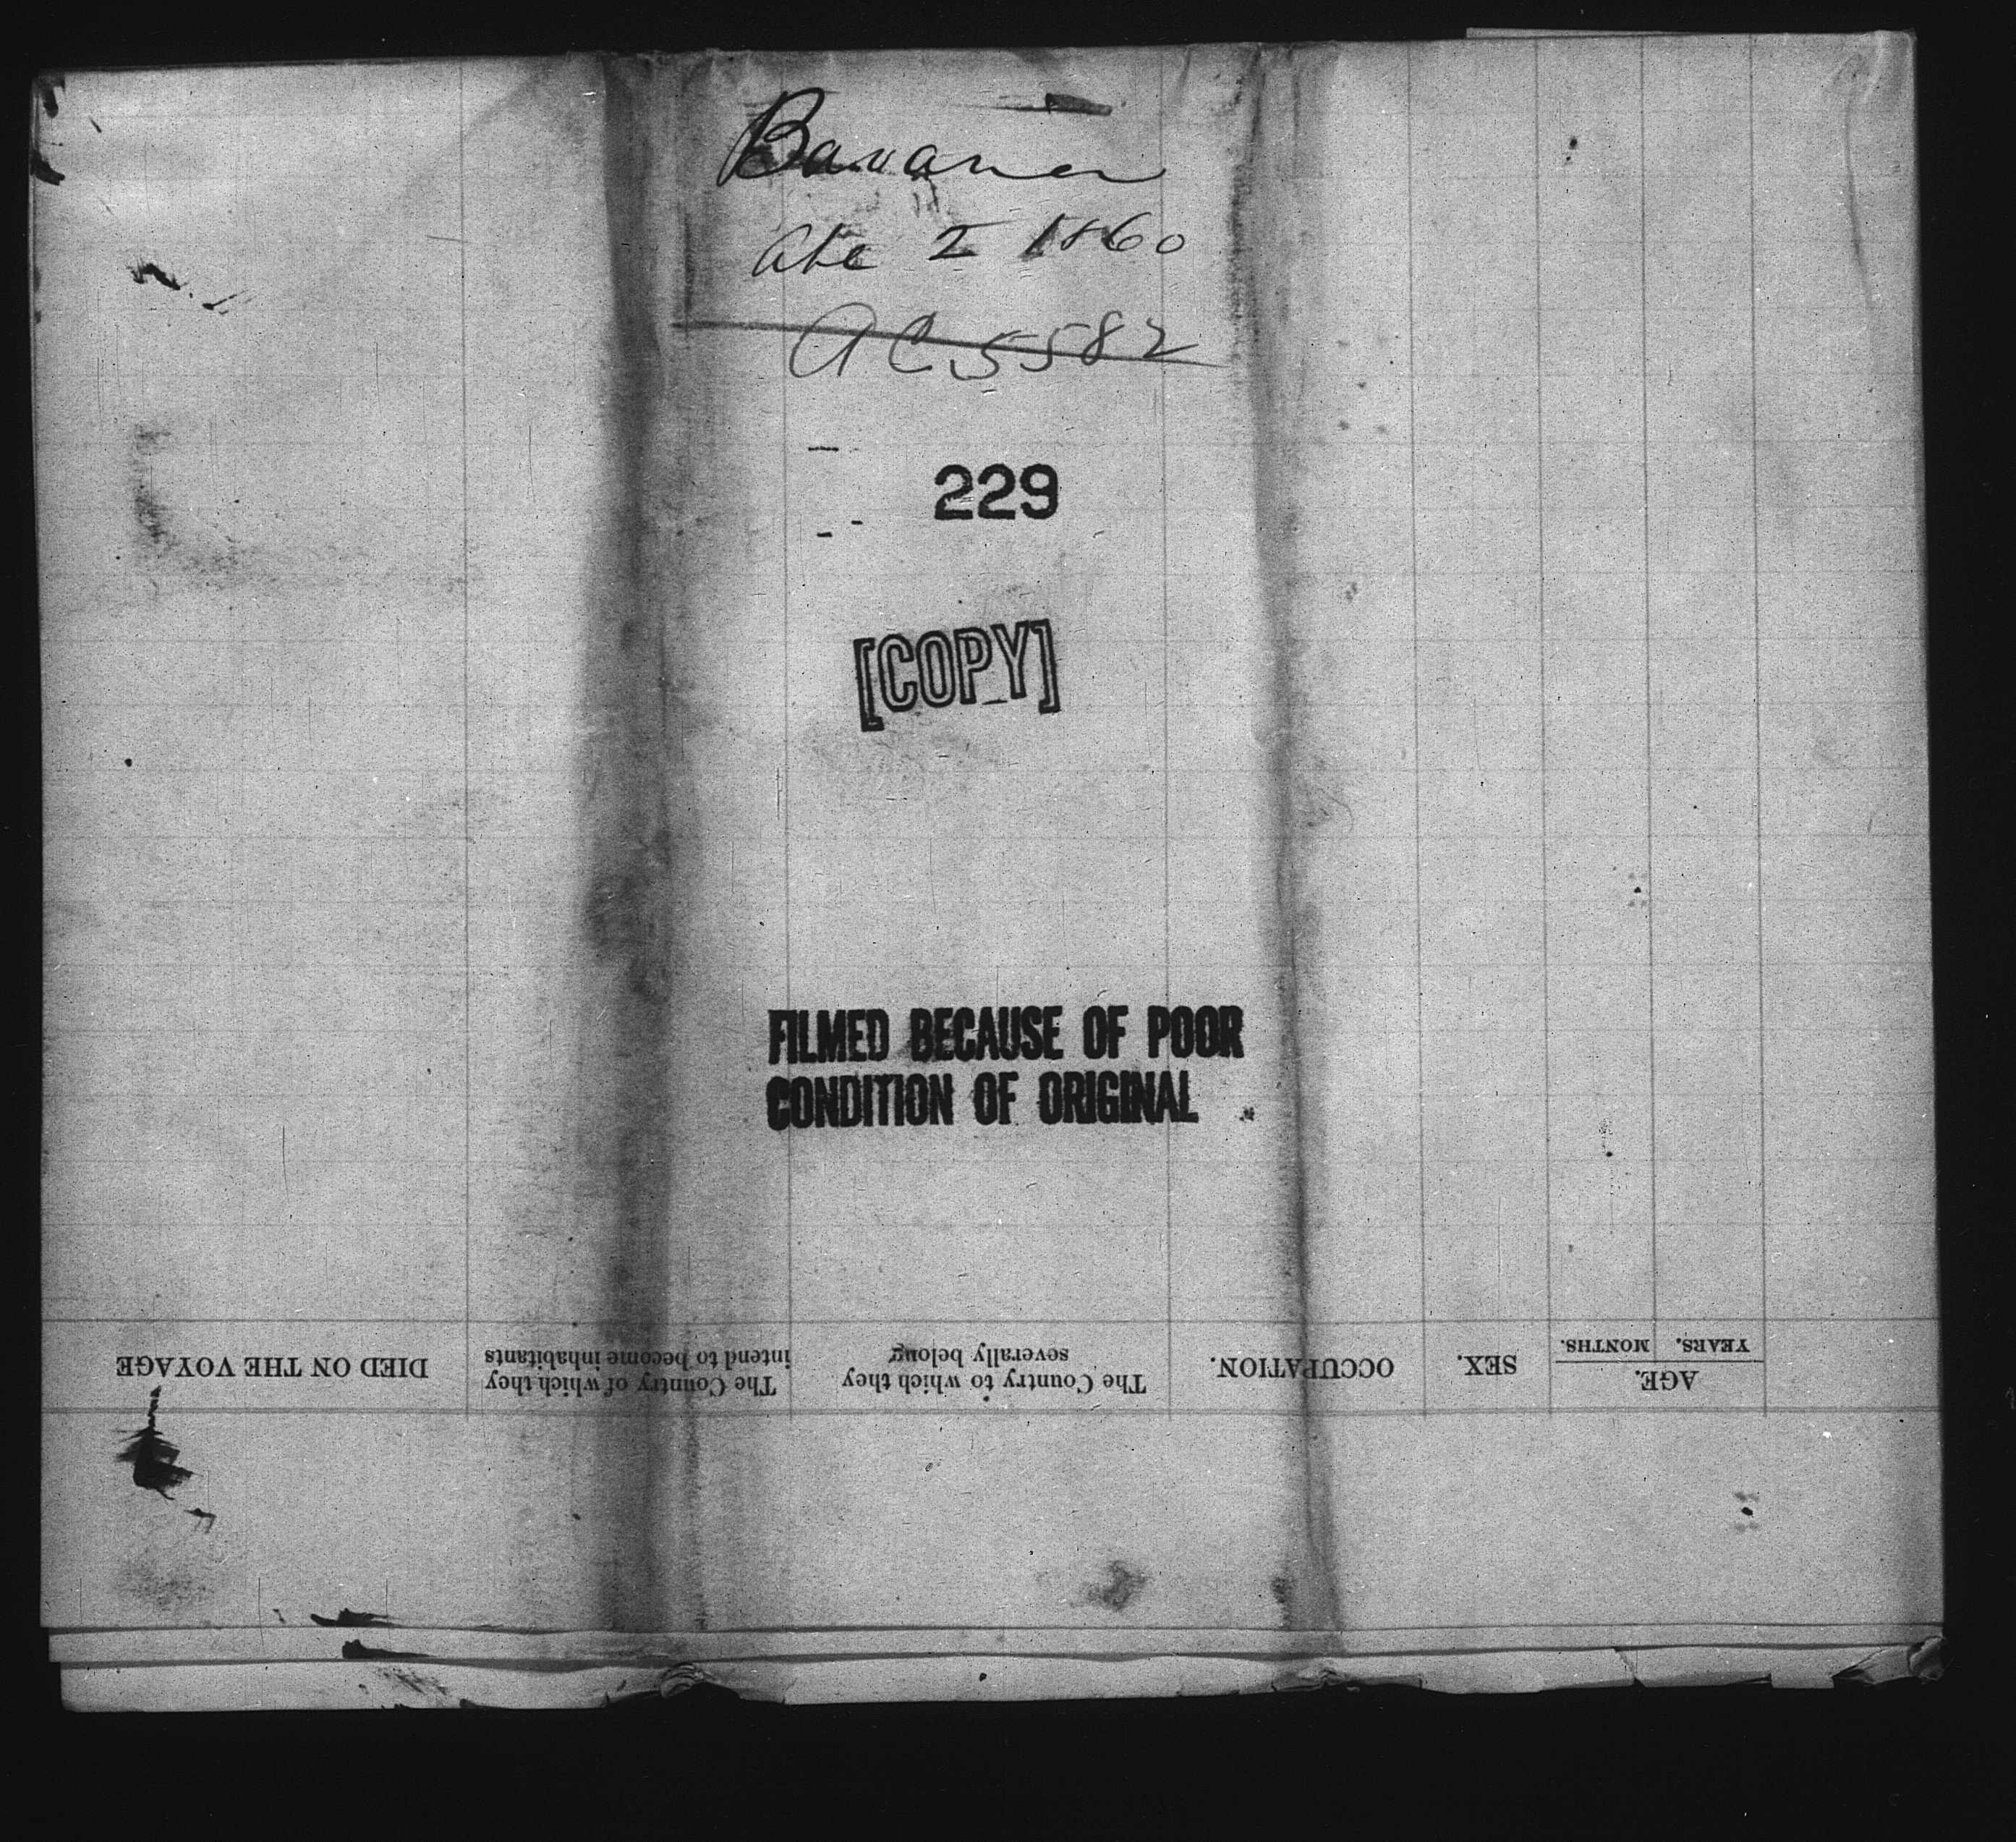 Bavarian
2 1860
AC 5582
229
[COPY]
FILMED BECAUSE OF POOR
CONDITION OF ORIGINAL
AGE.
YEARS.
MONTHS.
SEX.
OCCUPATION.
The Country to which they
severally belong
The Country of which they
intend to become inhabitants
DIED ON THE VOYAGE